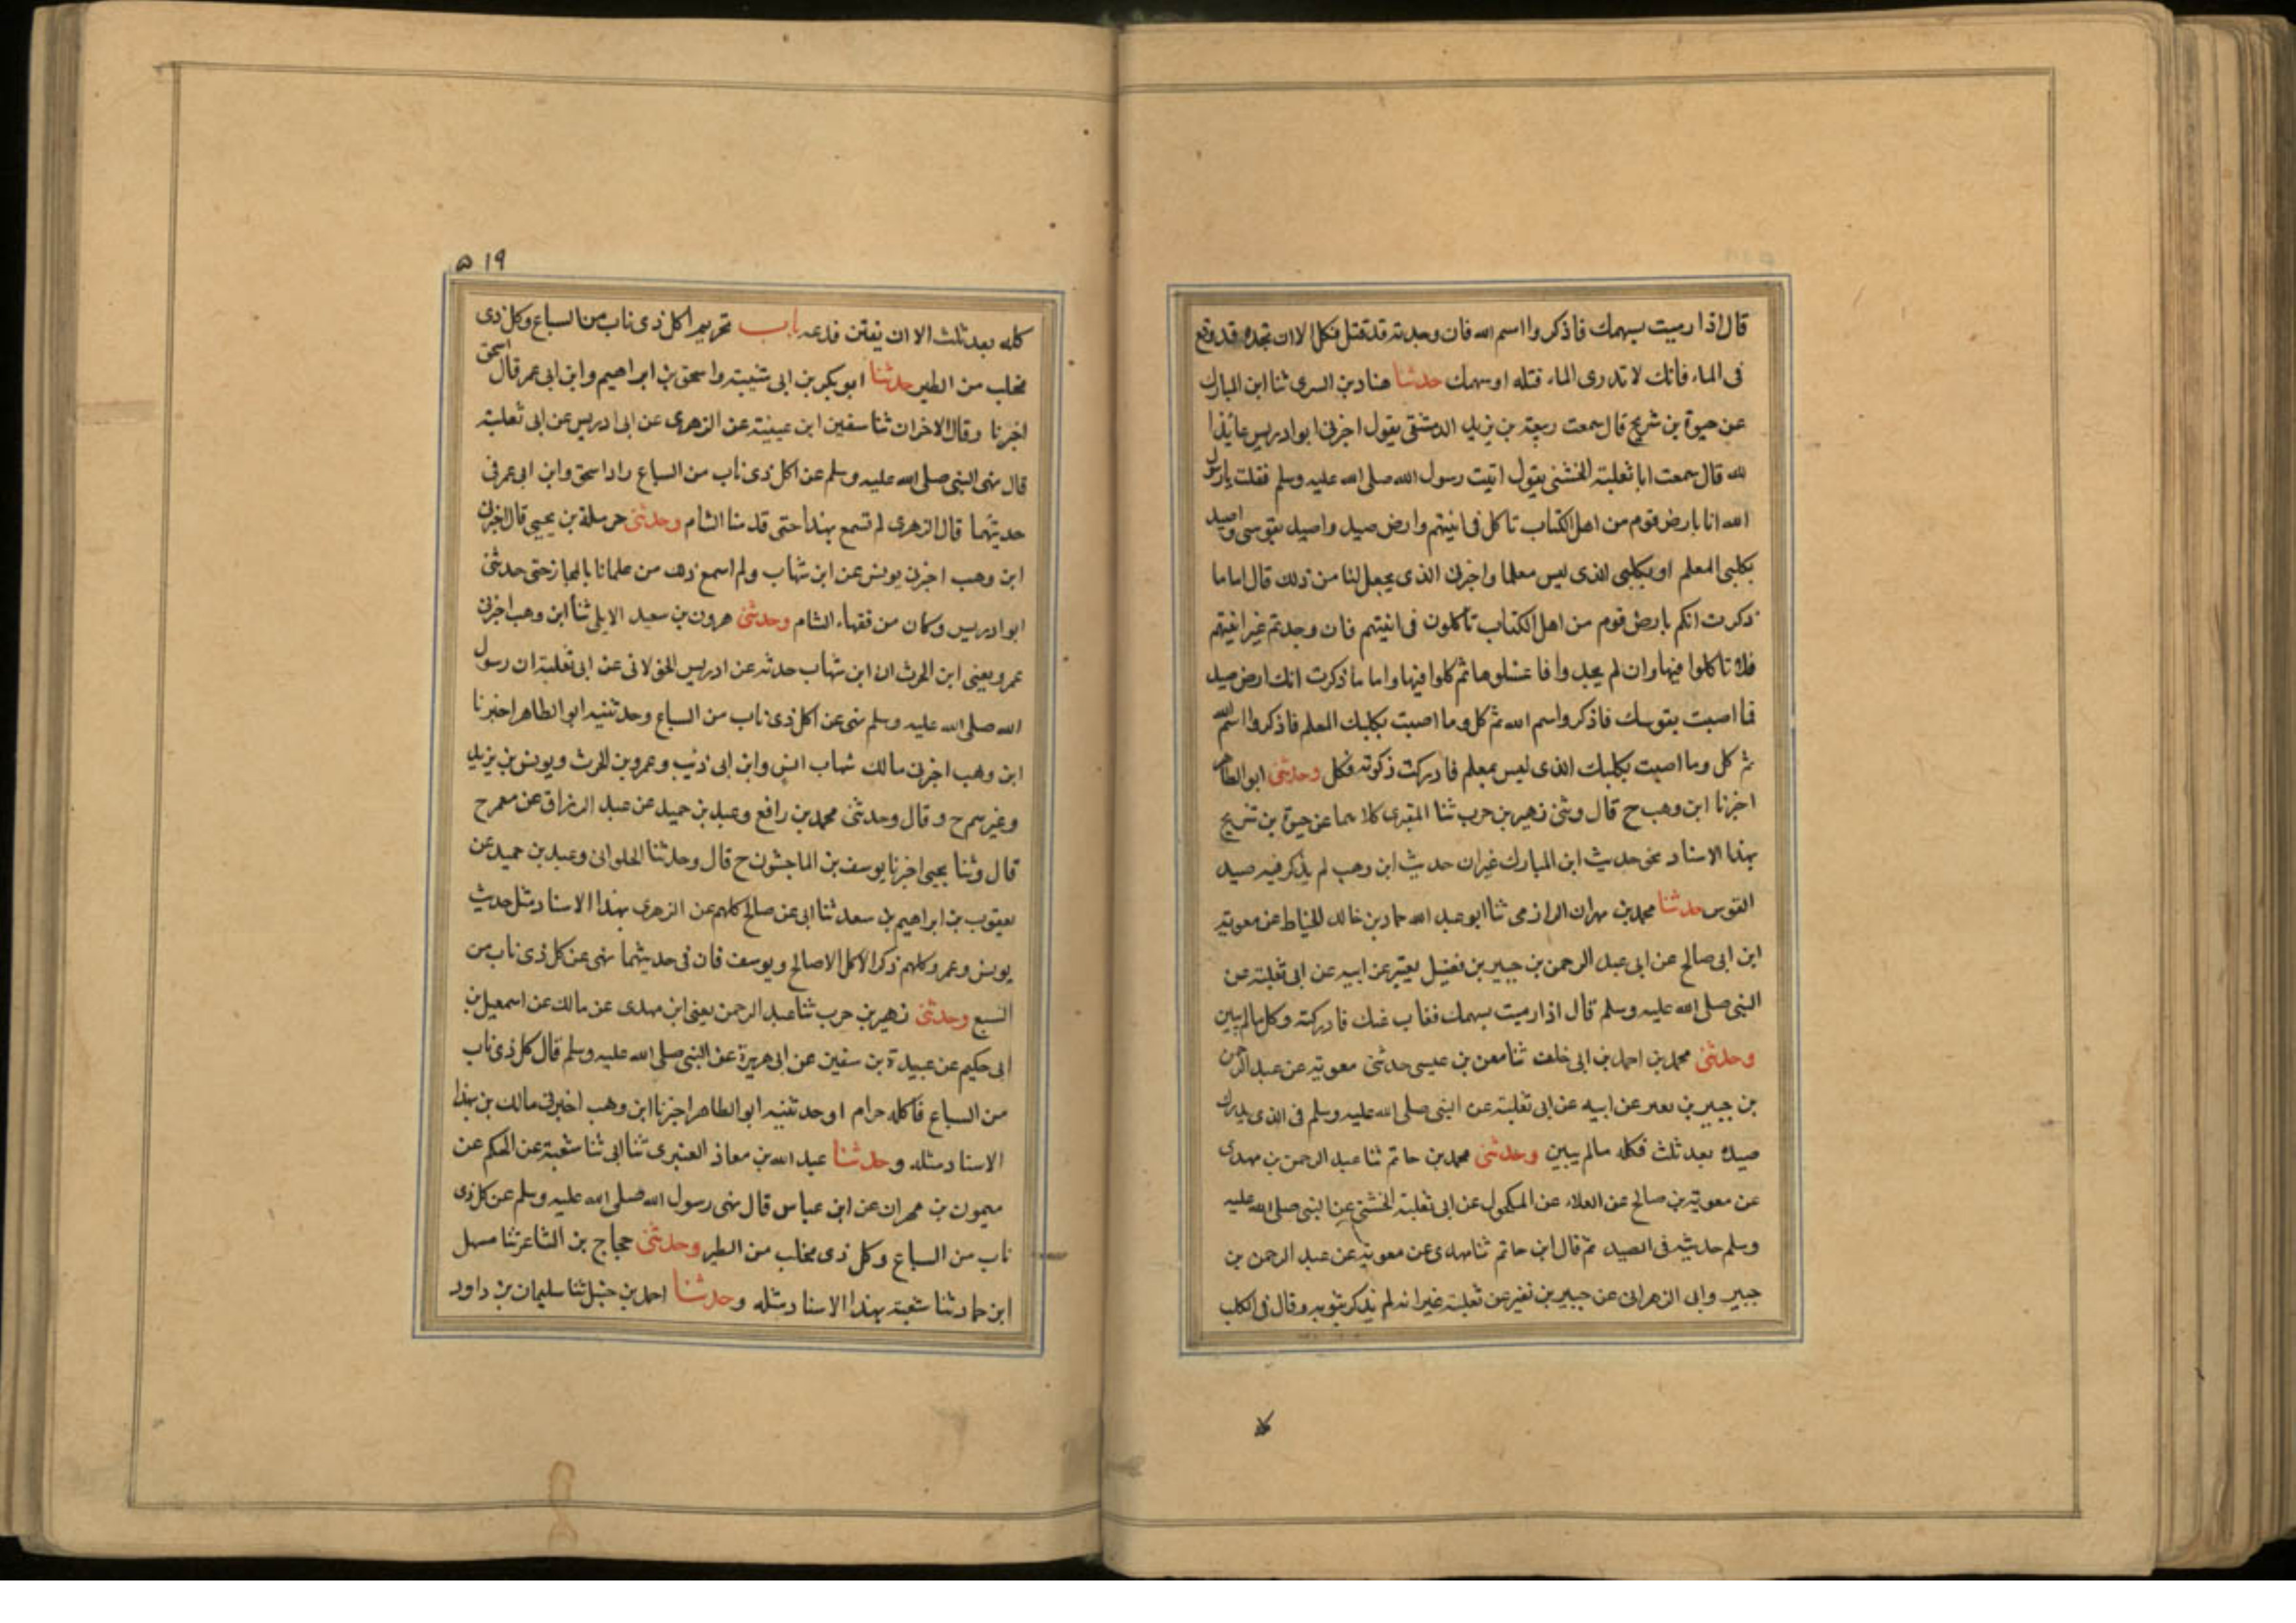 قال اذا رميت بسهمك فاذكروا اسم الله فان وجدته قد قتل فكل الا ان تجده قد وقع
فى الماء فانك لا تدرى الماء قتله او سهمك حدثنا هناد بن السرى ثنا ابن المبارك
عن حيوة بن شريح قال سمعت ربيعة بن يزيد الدمشقى يقول اخبرنى ابو ادريس عائذ
الله قال سمعت ابا ثعلبة الخشنى يقول اتيت رسول الله صلى الله عليه وسلم فقلت يا رسول
الله انا بارض قوم من اهل الكتاب ناكل فى انيتهم وارض صيد واصيد بقوسى واصيد
بكلبى المعلم او بكلبى الذى ليس معلما واخبرنى الذى يحل لنا من ذلك قال اما ما
ذكرت انكم بارض قوم من اهل الكتاب تاكلون فى انيتهم فان وجدتم غير انيتهم
فلا تاكلوا فيها وان لم تجدوا فاغسلوها ثم كلوا فيها واما ما ذكرت انك ارض صيد
فما اصبت بقوسك فاذكروا اسم الله ثم كل وما اصبت بكلبك المعلم فاذكروا اسم الله
ثم كل وما اصبت بكلبك الذى ليس بمعلم فادركت ذكوته فكل وحدثنى ابو الطاهر
اخبرنا ابن وهب ح قال وثنى زهير بن حرب ثنا المقرى كلاهما عن حيوة بن شريح
بهذا الاسناد نحو حديث ابن المبارك غير ان حديث ابن وهب لم يذكر فيه صيد
القوس حدثنا محمد بن مهران الرازى ثنا ابو عبد الله حماد بن خالد الخياط عن معوية
ابن ابى صالح عن ابى عبد الرحمن بن جبير بن نفيل عن ابيه عن ابى ثعلبة عن
النبى صلى الله عليه وسلم قال اذا رميت بسهمك فغاب عنك فادركته وكل ما لم يبين
وحدثنى محمد بن احمد بن ابى خلف ثنا معن بن عيسى حدثنى معوية عن عبد الرحمن
بن جبير بن نعير عن ابيه عن ابى ثعلبة عن النبى صلى الله عليه وسلم فى الذى يدرك
صيده بعد ثلث فكله ما لم يبين وحدثنى محمد بن حاتم ثنا عبد الرحمن بن مهدى
عن معوية بن صالح عن العلاء عن المكحول عن ابى ثعلبة الخشنى عن النبى صلى الله عليه
وسلم حديثه فى الصيد ثم قال ابن حاتم ثنا مهدى عن معوية عن عبد الرحمن بن
جبير وابى الزهرانى عن جبير بن نفير عن ثعلبة غير انه لم يذكر بثوبه وقال فى الكلب
كله
٥١٩
كله بعد ثلث الا ان ينتن فدعه باب تحريم اكل ذى ناب من السباع وكل ذى
مخلب من الطير حدثنا ابو بكر بن ابى شيبة واسحق بن ابراهيم وابن ابى عمر قال اسحق
اخبرنا وقال الاخران ثنا سفين ابن عيينة عن الزهرى عن ابى ادريس عن ابى ثعلبة
قال نهى النبى صلى الله عليه وسلم عن اكل ذى ناب من السباع زاد اسحق وابن ابى عمر فى
حديثهما قال الزهرى لم نسمع بهذا حتى قدمنا الشام وحدثنى حرملة بن يحيى قال اخبرنى
ابن وهب اخبرنى يونس عن ابن شهاب ولم اسمع ذلك من علمائنا بالحجاز حتى حدثنى
ابو ادريس وكان من فقهاء الشام وحدثنى هرون بن سعيد الايلى ثنا ابن وهب اخبرنى
عمرو يعنى ابن الحرث ان ابن شهاب حدثه عن ادريس الخولانى عن ابى ثعلبة ان رسول
الله صلى الله عليه وسلم نهى عن اكل ذى ناب من السباع وحدثنيه ابو الطاهر اخبرنا
ابن وهب اخبرنى مالك شهاب انس وابن ابى ذئب وعمرو بن الحرث ويونس بن يزيد
وغيرهم ح وقال وحدثنى محمد بن رافع وعبد بن حميد عن عبد الرزاق عن معمر ح
قال وثنا يحيى اخبرنا يوسف بن الماجشون ح قال وحدثنا الحلوانى وعبد بن حميد عن
يعقوب بن ابراهيم بن سعد ثنا ابى عن صالح كلهم عن الزهرى بهذا الاسناد مثل حديث
يونس وعمرو كلهم ذكر الاكل الا صالح ويوسف فان فى حديثهما نهى عن كل ذى ناب من
السبع وحدثنى زهير بن حرب ثنا عبد الرحمن يعنى ابن مهدى عن مالك عن اسمعيل بن
ابى حكيم عن عبيدة بن سفين عن ابى هريرة عن النبى صلى الله عليه وسلم قال كل ذى ناب
من السباع فاكله حرام او حدثنيه ابو الطاهر اخبرنا ابن وهب اخبرنى مالك بن بهذا
الاسناد مثله وحدثنا عبيد الله بن معاذ العنبرى ثنا ابى ثنا شعبة عن الحكم عن
ميمون بن مهران عن ابن عباس قال نهى رسول الله صلى الله عليه وسلم عن كل ذى
ناب من السباع وكل ذى مخلب من الطير وحدثنى حجاج بن الشاعر ثنا سهل
ابن حماد ثنا شعبة بهذا الاسناد مثله وحدثنا احمد بن حنبل ثنا سليمان بن داود